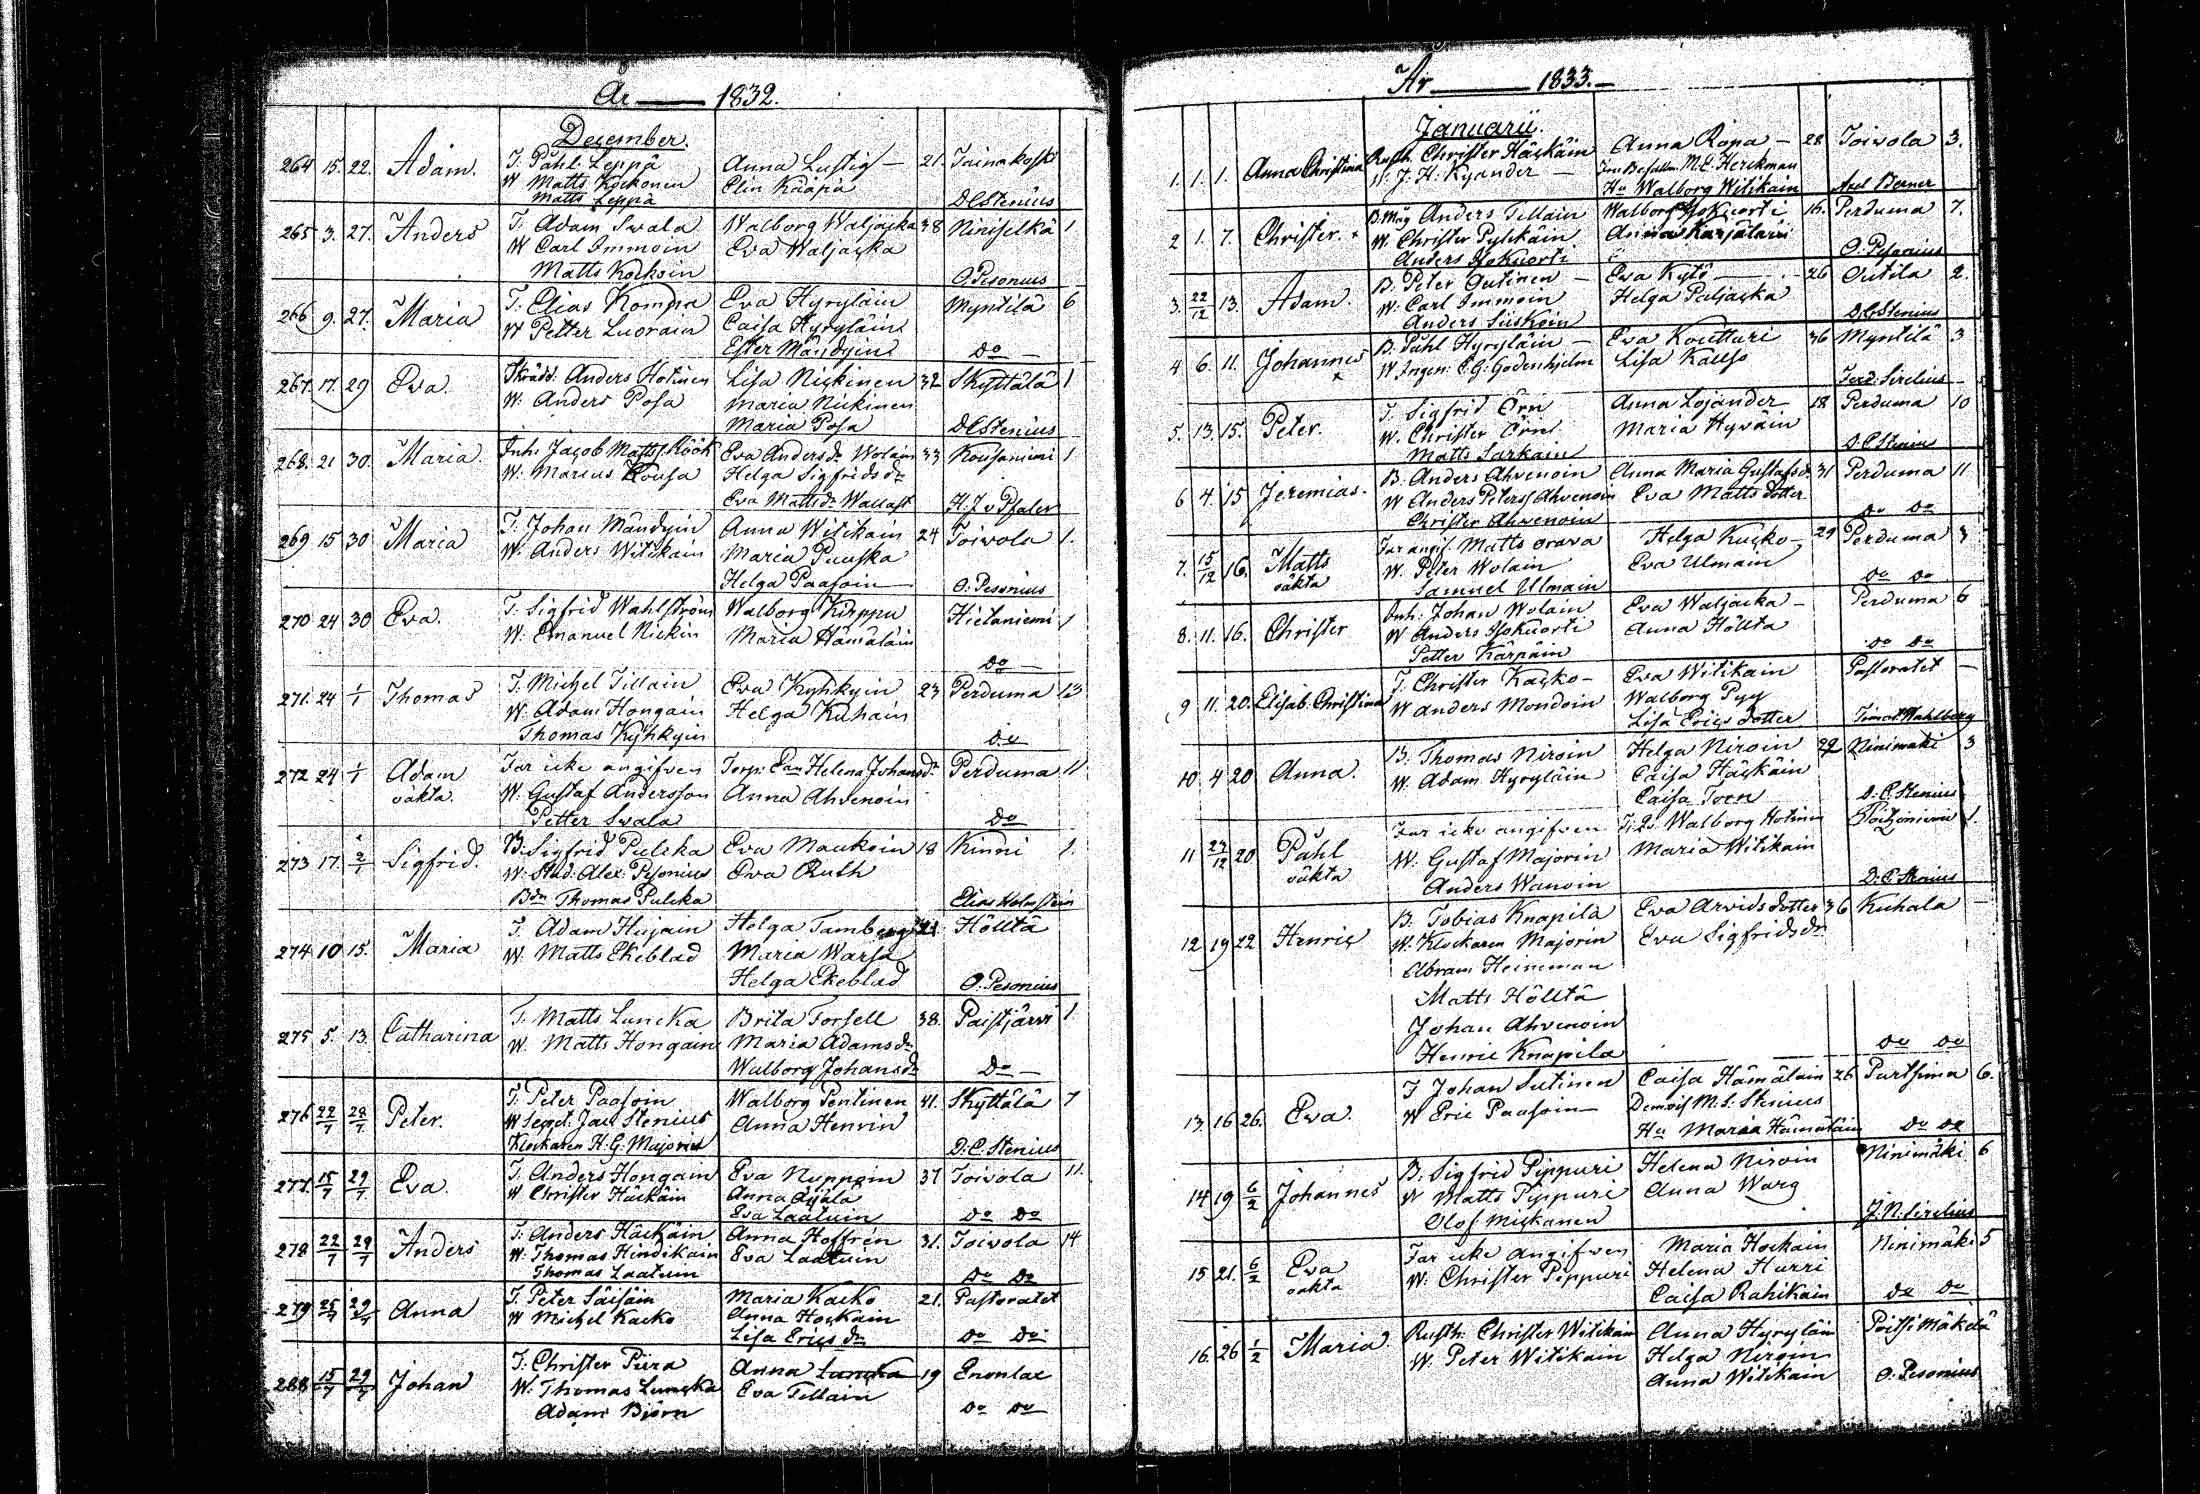 År 1832.
December.
264 15. 22. Adam. T. Påhl Leppä Anna Lustig 21. Tainakoski
W Matts Kockonen Elin Kääpä
Matts Leppä DC Stenius
265 3. 27. Anders T. Adam Swala Walborg Waljacka 38 Niniselkä 1
W Carl Immoin Eva Waljacka
Matts Kockoin O. Pesonius
266 9. 27. Maria T. Elias Kompa Eva Hyryläin Myntilä 6
W Petter Luorain Caisa Hyryläin
Ester Mändyin Do
267 17. 29 Eva. Skrädd. Anders Hotinen Lisa Nickinen 32 Skyttälä 1
W. Anders Posa Maria Nickinen
Maria Posa DC Stenius
268. 21 30. Maria. Inh. Jacob Matts. Röök Eva Andersdr Wolain 33 Kousaniemi 1
W. Marcus Rousa Helga Sigfridsdr
Eva Mattsdr Wallast H. J v Pfaler
269 15 30 Maria T. Johan Mändyin Anna Witikain 24 Toivola 1.
W. Anders Witikain Maria Puuska
Helga Paasoin O. Pesonius
270 24 30 Eva. T. Sigfrid Wahlström Walborg Kirppu Hietaniemi 1
W. Emanuel Nickin Maria Hämäläin
Do
271. 24 1/1 Thomas T. Michel Tillain Eva Kyhkyin 23 Perduma 13
W. Adam Hongain Helga Kuhain
Thomas Kyhkyin Do
272 24 1/1 Adam Far icke angifven Torp. Helena Johansdr Perduma 11
oäkta. W. Gustaf Andersson Anna Ahvenoin
Petter Swala Do
273 17. 2/1 Sigfrid. B. Sigfrid Pulcka Eva Maukoin 18 Kinni 1.
W. Stud. Alex. Pesonius Eva Ruth
Bdn Thomas Pulcka Elias Holmstein
274 10 15. Maria T. Adam Hujain Helga Tamberg 21 Hölltä
W. Matts Ekeblad Maria Warsa
Helga Ekeblad O. Pesonius
275 5. 13. Catharina T. Matts Luncka Brita Forsell 38. Paistjärvi 1
W. Matts Hongain Maria Adamsdr
Walborg Johansdr Do
276 22/7 28/7 Peter. T. Peter Paasoin Walborg Pentinen 41. Skyttälä 7
W Secret. Jac. Stenius Anna Henrin
Klockaren H. G. Majorin D. C. Stenius
277. 15/7 29/7 Eva. T. Anders Hongain Eva Nuppoin 37 Toivola 11.
W Christer Häckäin Anna Äijälä
Eva Laatuin Do Do
278 22/7 29/7 Anders T. Anders Häckäin Anna Hoffrén 31. Toivola 14
W. Thomas Hindikain Eva Laatuin
Thomas Laatuin Do Do
279 25/7 29/7 Anna T. Peter Säisäin Maria Kacko 21. Pastoratet
W Michel Kacko Anna Hockain
Lisa Ericsdr Do Do
288 15/7 29/7 Johan T. Christer Piira Anna Luncka 19 Enonlax
W. Thomas Luncka Eva Tillain
Adam Björn Do Do
År 1833.
Januarii.
1. 1. 1. Anna Christina Rusth. Christer Häckäin Anna Ropa 28 Toivola 3.
W. J. H. Kyander M. E. Herckman
Hu Walborg Witikain Axel Berner
2 1. 7. Christer. B. Måg Anders Tillain Walborg Isokuorti 16. Perduma 7.
W. Christer Pylckäin Anna Karjalain
Anders Isokuorti O. Pesonius
3. 22/12 13. Adam. B. Peter Outinen Eva Kytö 26 Outila 2.
W. Carl Immoin Helga Puljacka
Anders Siiskoin D. C Stenius
4 6. 11. Johannes B. Påhl Hyryläin Eva Koutturi 36 Myntilä 3
W Ingen. C. G. Godenhjelm Lisa Kallso
Ferd. Sirelius
5. 13. 15. Peter. T. Sigfrid Örn Anna Lojander 18 Perduma 10
W. Christer Örn Maria Hyväin
Matts Sarkain D. C Stenius
6 4. 15 Jeremias. B. Anders Ahvenoin Anna Maria Gustafsdr 31 Perduma 11
W Anders Peterss. Ahvenoin Eva Matts dotter
Christer Ahvenoin Do Do
7. 15/12 16. Matts Far angif. Matts Orava Helga Kucko 29 Perduma 3
oäkta W. Peter Wolain Eva Ulmain
Samuel Ulmain Do Do
8. 11. 16. Christer Inh. Johan Wolain Eva Waljacka Perduma 6
W Anders Isokuorti Anna Höllta
Petter Kärpäin Do Do
9 11. 20. Elisab. Christina T. Christer Kacko Eva Witikain Pastoratet
W Anders Mondoin Walborg Pyy
Lisa Erics dotter Timot. Wahlberg
10. 4 20 Anna. B. Thomas Niroin Helga Niroin 22 Ninimäki 3
W. Adam Hyryläin Caisa Häckäin
Caisa Toen D. C. Stenius
11 27/12 20 Påhl Far icke angifven Walborg Hotinen 1.
oäkta W. Gustaf Majorin Maria Witikain
Anders Wanoin D. C. Stenius
12 19 22 Henric B. Tobias Knapila Eva Arvids dotter 36 Kuhala
W. Klockaren Majorin Eva Sigfridsdr
Abram Heineman
Matts Hölltä
Johan Ahvenoin
Henric Knapila Do Do
13. 16 26. Eva. T Johan Sutinen Caisa Hämäläin 26 Purtsima 6.
W Eric Paasoin Demois. M. S. Stenius
Hu Maria Hämäläin Do Do
14 19 6/2 Johannes B. Sigfrid Pippuri Helena Niroin Ninimäki 6
W Matts Pippuri Anna Warg
Olof Mickanen J. N. Sirelius
15 21. 6/2 Eva Far icke angifven Maria Hockain Ninimäki 5
oäkta W. Christer Pippuri Helena Hurri
Caisa Rahikain Do Do
16. 26 1/2 Maria. Rusth. Christer Witikain Anna Hyryläin Poitsimäkelä
W. Peter Witikain Helga Niroin
Anna Witikain O. Pesonius